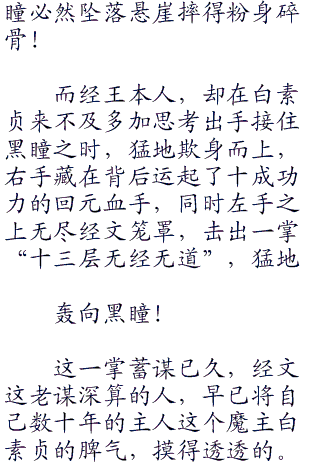 瞳必然坠落悬崖摔得粉身碎
骨！
而经王本人，却在白素
贞来不及多加思考出手接住
黑瞳之时，猛地欺身而上，
右手藏在背后运起了十成功
力的回元血手，同时左手之
上无尽经文笼罩，击出一掌
“十三层无经无道”，猛地
轰向黑瞳！
这一掌蓄谋已久，经文
这老谋深算的人，早已将自
己数十年的主人这个魔主白
素贞的脾气，摸得透透的。